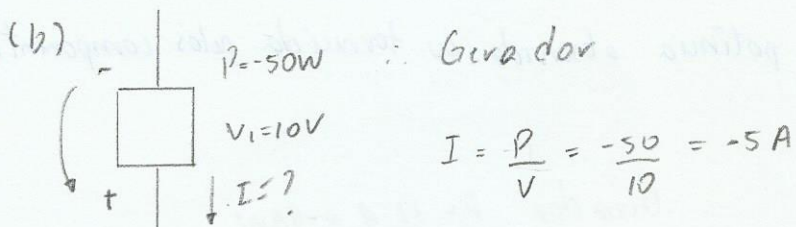 (b)
-
P=-50W ∴ Gerador
V₁=10V
I = P/V = -50/10 = -5 A
+
I=?